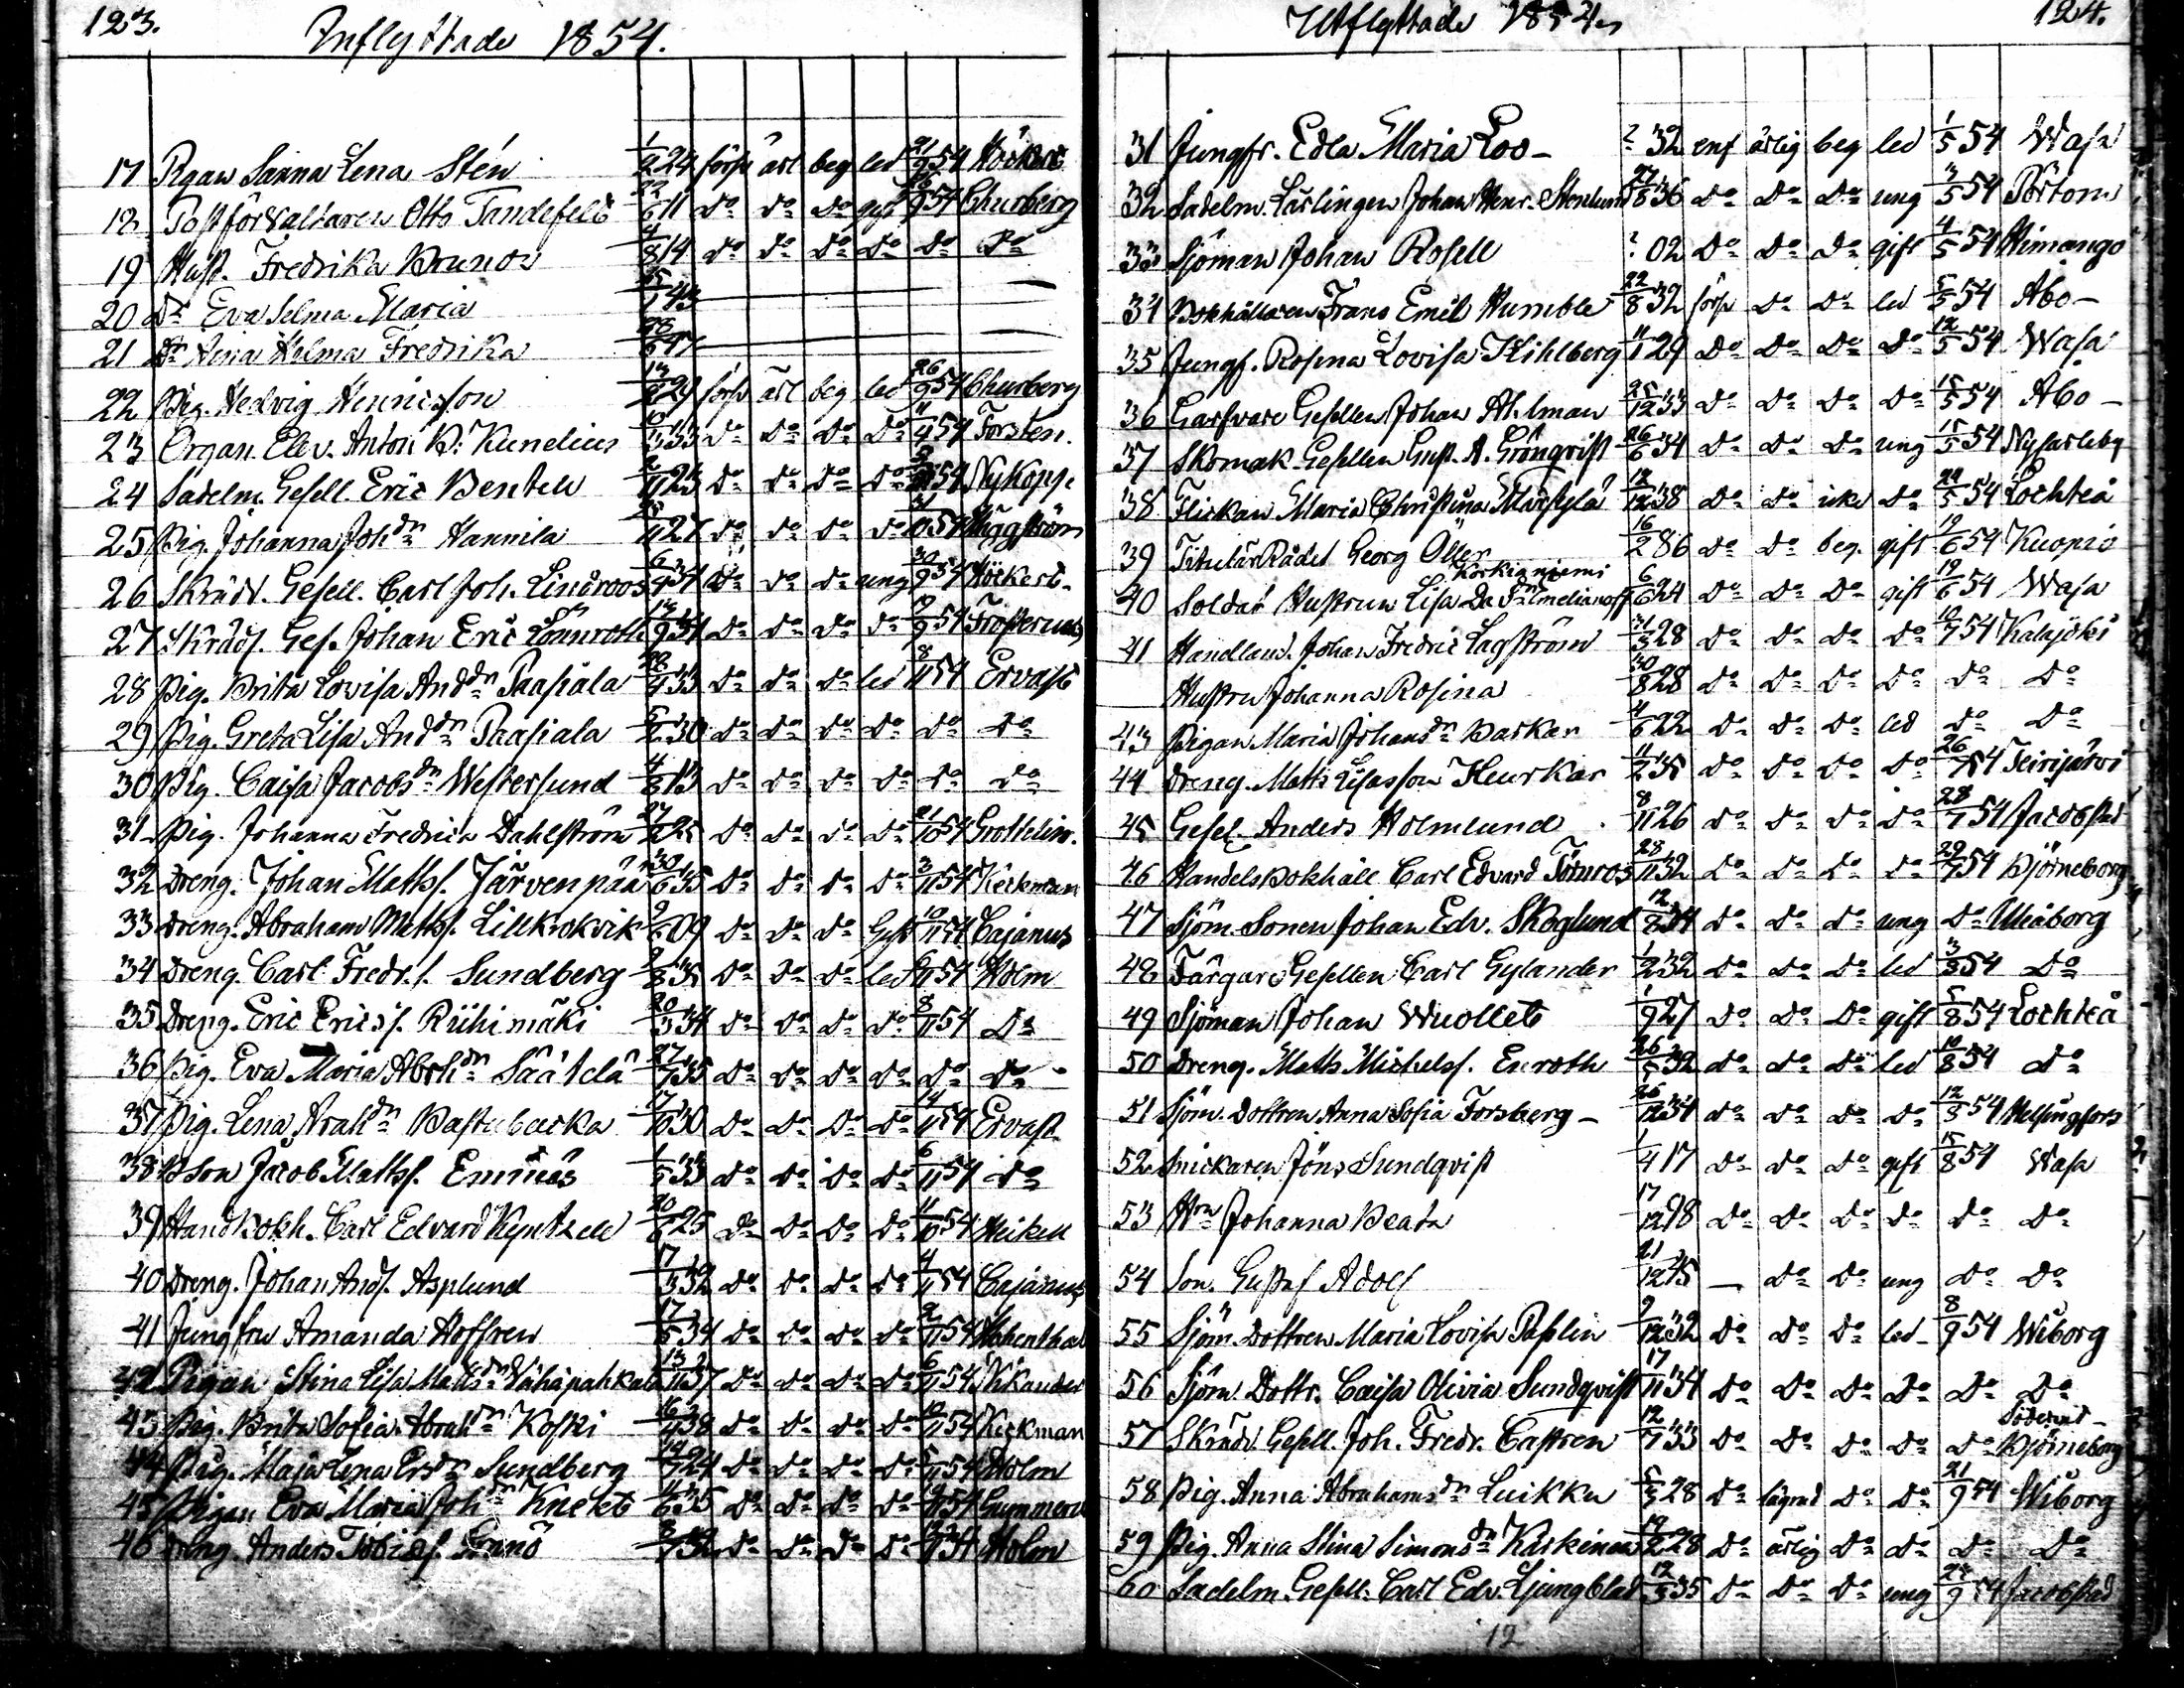 123.
Inflyttade 1854.
17 Pigan Sanna Lena Stén 24 försv ärl beg led 21/9 54 Höckert
18 Postförvaltaren Otto Tandefelt 22/6 11 Do Do Do gift 9 54 Churberg
19 Hust. Fredrika Brunou 4/8 14 Do Do Do Do Do Do
20 Dr Eva Selma Maria 43
21 Dr Aina Hilma Fredrika 28/6 47
22 Pig. Hedvig Henricsson 13 29 försv ärl beg led 26/9 54 Churberg
23 Organ. Elev. Anton B. Kunelius 33 Do Do Do Do 54 Forsten.
24 Sadelm. Gesell. Eric Benten 2/11 23 Do Do Do Do 54 Nykopp.
25 Pig. Johanna Johdr Hannila 11 27 Do Do Do Do 54 Häggström
26 Skrädd. Gesell. Carl Joh. Lindroos 6 34 Do Do Do ung 30/9 54 Höckert.
27 Skrädd. Ges. Johan Eric Lönnroth 13/9 34 Do Do Do Do 54 Frosterus
28 Pig. Brita Lovisa Anddr Paasiala 33 Do Do Do led 8/11 54 Ervast
29 Pig. Greta Lisa Anddr Paasiala 30 Do Do Do Do Do Do
30 Pig. Caisa Jacobsdr Westersund 4 13 Do Do Do Do Do Do
31 Pig. Johanna Fredrica Dahlström 27 25 Do Do Do Do 21/10 54 Grothelin.
32 Dreng. Johan Mathss. Järvenpää 30/6 35 Do Do Do Do 3/11 54 Keckman
33 Dreng. Abraham Mathss. Lillkrokvik 9/6 09 Do Do Do Gift 10/11 54 Cajanus
34 Dreng. Carl Fredr. s. Sundberg 8 35 Do Do Do led 11 54 Holm
35 Dreng. Eric Erics s. Riihimäki 20/3 34 Do Do Do Do 8/11 54 Do
36 Pig. Eva Maria Abrhdr Säätelä 27/7 35 Do Do Do Do Do Do
37 Pig. Lena Arahdr Bastubacka 17/10 30 Do Do Do Do 14/11 54 Ervast
38 Bson Jacob Mathss. Emnäs 1/5 33 Do Do Do Do 6/11 54 Do
39 Handbokh. Carl Edvard Kyntzell 20/6 25 Do Do Do Do 11/10 54 Heikell
40 Dreng. Johan Ands. Asplund 17/3 32 Do Do Do Do 4/11 54 Cajanus
41 Jungfru Amanda Hoffren 17/5 34 Do Do Do Do 9/11 54 Hohenthal
42 Pigan Stina Lisa Mattsdr Vähäpahkala 13/11 37 Do Do Do Do 6/11 54 Vikander
43 Pig. Brita Sofia Abrahdr Koski 16/4 38 Do Do Do Do 10/11 54 Keckman
44 Pig. Maja Lena Ersdr Sundberg 24 Do Do Do Do 5/11 54 Holm
45 Pigan Eva Maria Johdr Knekt 11/6 35 Do Do Do Do 11 54 Gummerus
46 Dreng. Anders Tobias s. 32 Do Do Do Do 54 Holm
Utflyttade 1854
124.
31 Jungfr. Edla Maria Loo - ? 32 enf ärlig beg led 1/5 54 Wasa
32 Sadelm. Lärlingen Johan Henr. Stenlund 27/8 36 Do Do Do ung 3/5 54 Pörtom
33 Sjöman Johan Rosell ? 02 Do Do Do gift 4/5 54 Himango
34 Bokhållaren Frans Emil Humble 22/8 32 försv Do Do led 5/5 54 Åbo -
35 Jungf. Rosina Lovisa Kihlberg 11/1 29 Do Do Do Do 12/5 54 Wasa
36 Garfvare Gesellen Johan Ahlman 25/12 33 Do Do Do Do 15/5 54 Åbo -
37 Skomak. Gesellen Gust. A. Grönqvist 26/6 34 Do Do Do ung 15/5 54 Nycarleby
38 Flickan Maria Christina Marstela 12/12 38 Do Do icke Do 24/5 54 Lochteå
39 Titulär Rådet Georg Öller 16/2 86 Do Do beg. gift 19/6 54 Kuopio
Korkianiemi
40 Soldat Hustrun Lisa Da Dr Emelianoff 6/6 24 Do Do Do gift 19/6 54 Wasa
41 Handland. Johan Fredric Lagström 31/3 28 Do Do Do Do 7 54 Kalajoki
Hustru Johanna Rosina 30/8 28 Do Do Do Do Do Do
43 Pigan Maria Johansdr Barkar 4/6 22 Do Do Do led Do Do
44 Dreng. Matts Lisasson Heurkar 11/2 35 Do Do Do Do 26/7 54 Teirijärvi
45 Gesel. Anders Holmlund 8/11 26 Do Do Do Do 28/7 54 Jacobstad
46 Handelsbokhåll Carl Edvard Törnros 28/11 32 Do Do Do Do 29/7 54 Björneborg
47 Sjöm. Sonen Johan Edv. Skoglund 12/8 34 Do Do Do ung Do Uleåborg
48 Färgare Gesellen Carl Gylander 1/2 32 Do Do Do led 3/8 54 Do
49 Sjöman Johan Wuollet 1/9 27 Do Do Do gift 5/8 54 Lochteå
50 Dreng. Matts Michelss. Enroth 26/5 32 Do Do Do led 10/8 54 Do
51 Sjöm. dottren Anna Sofia Forsberg - 26/12 34 Do Do Do Do 12/8 54 Helsingfors
52 Snickaren Jöns Sundqvist 1/4 17 Do Do Do gift 15/8 54 Wasa
53 Hn Johanna Beata 17/12 18 Do Do Do Do Do Do
54 Son. Gustaf Adolf 21/12 45 — Do Do ung Do Do
55 Sjöm. Dottren Maria Lovisa Paslin 9/12 32 Do Do Do led - 8/9 54 Wiborg
56 Sjöm. Dottr. Caisa Olivia Sundqvist 17/11 34 Do Do Do Do Do Do
57 Skrädd. Gesell. Joh. Fredr. Castren 12/7 33 Do Do Do Do Do Björneborg
58 Pig. Anna Abrahamsdr Luikku 5/3 28 Do lägrad Do Do 21/9 54 Wiborg
59 Pig. Anna Stina Simonsdr Karkinen 19/2 28 Do ärlig Do Do Do Do
60 Sadelm. Gesell. Carl Edv. Ljungblad 12/3 35 Do Do Do ung 9 54 Jacobstad
12